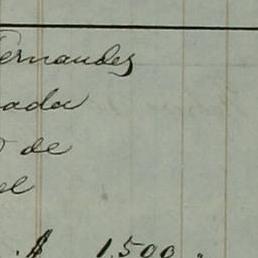 ernandes
ada
de
el
$ 1.500